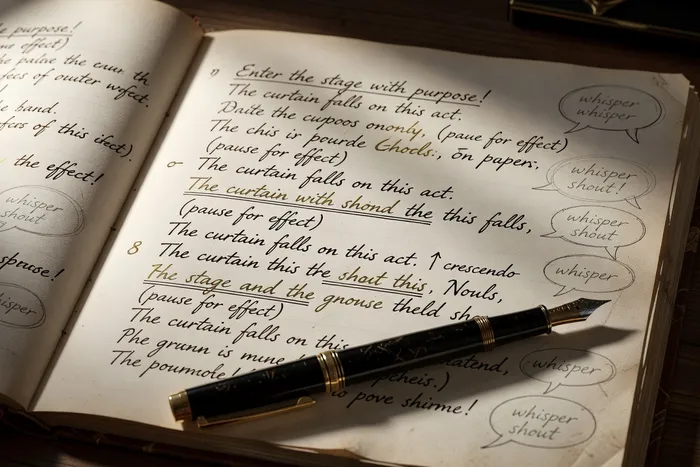 e purpose!
me effect)
he paine the caur th
fecs of outer wfect.
!
he band.
fcrs of this ifect).
the effect!
whisper
shout
spause!
isper
Enter the stage with purpose!
The curtain falls on this act.
Daite the cupoos ononly, (paue for effect)
The chis is pourde Chocls:, ōn paper;.
(pause for effect)
The curtain falls on this act.
The curtain with shond the this falls,
(pause for effect)
The curtain falls on this act. ↑ crescendo
8 The curtain this the shout this, Nouls,
The stage and the gnouse theld sh
(pause for effect)
The curtain falls on this
Phe grunn is mune latend,
pcheis.)
The pourmole! to pove shirme!
whisper
whisper
whisper
shout!
whisper
shout
whisper
whisper
whisper
shout